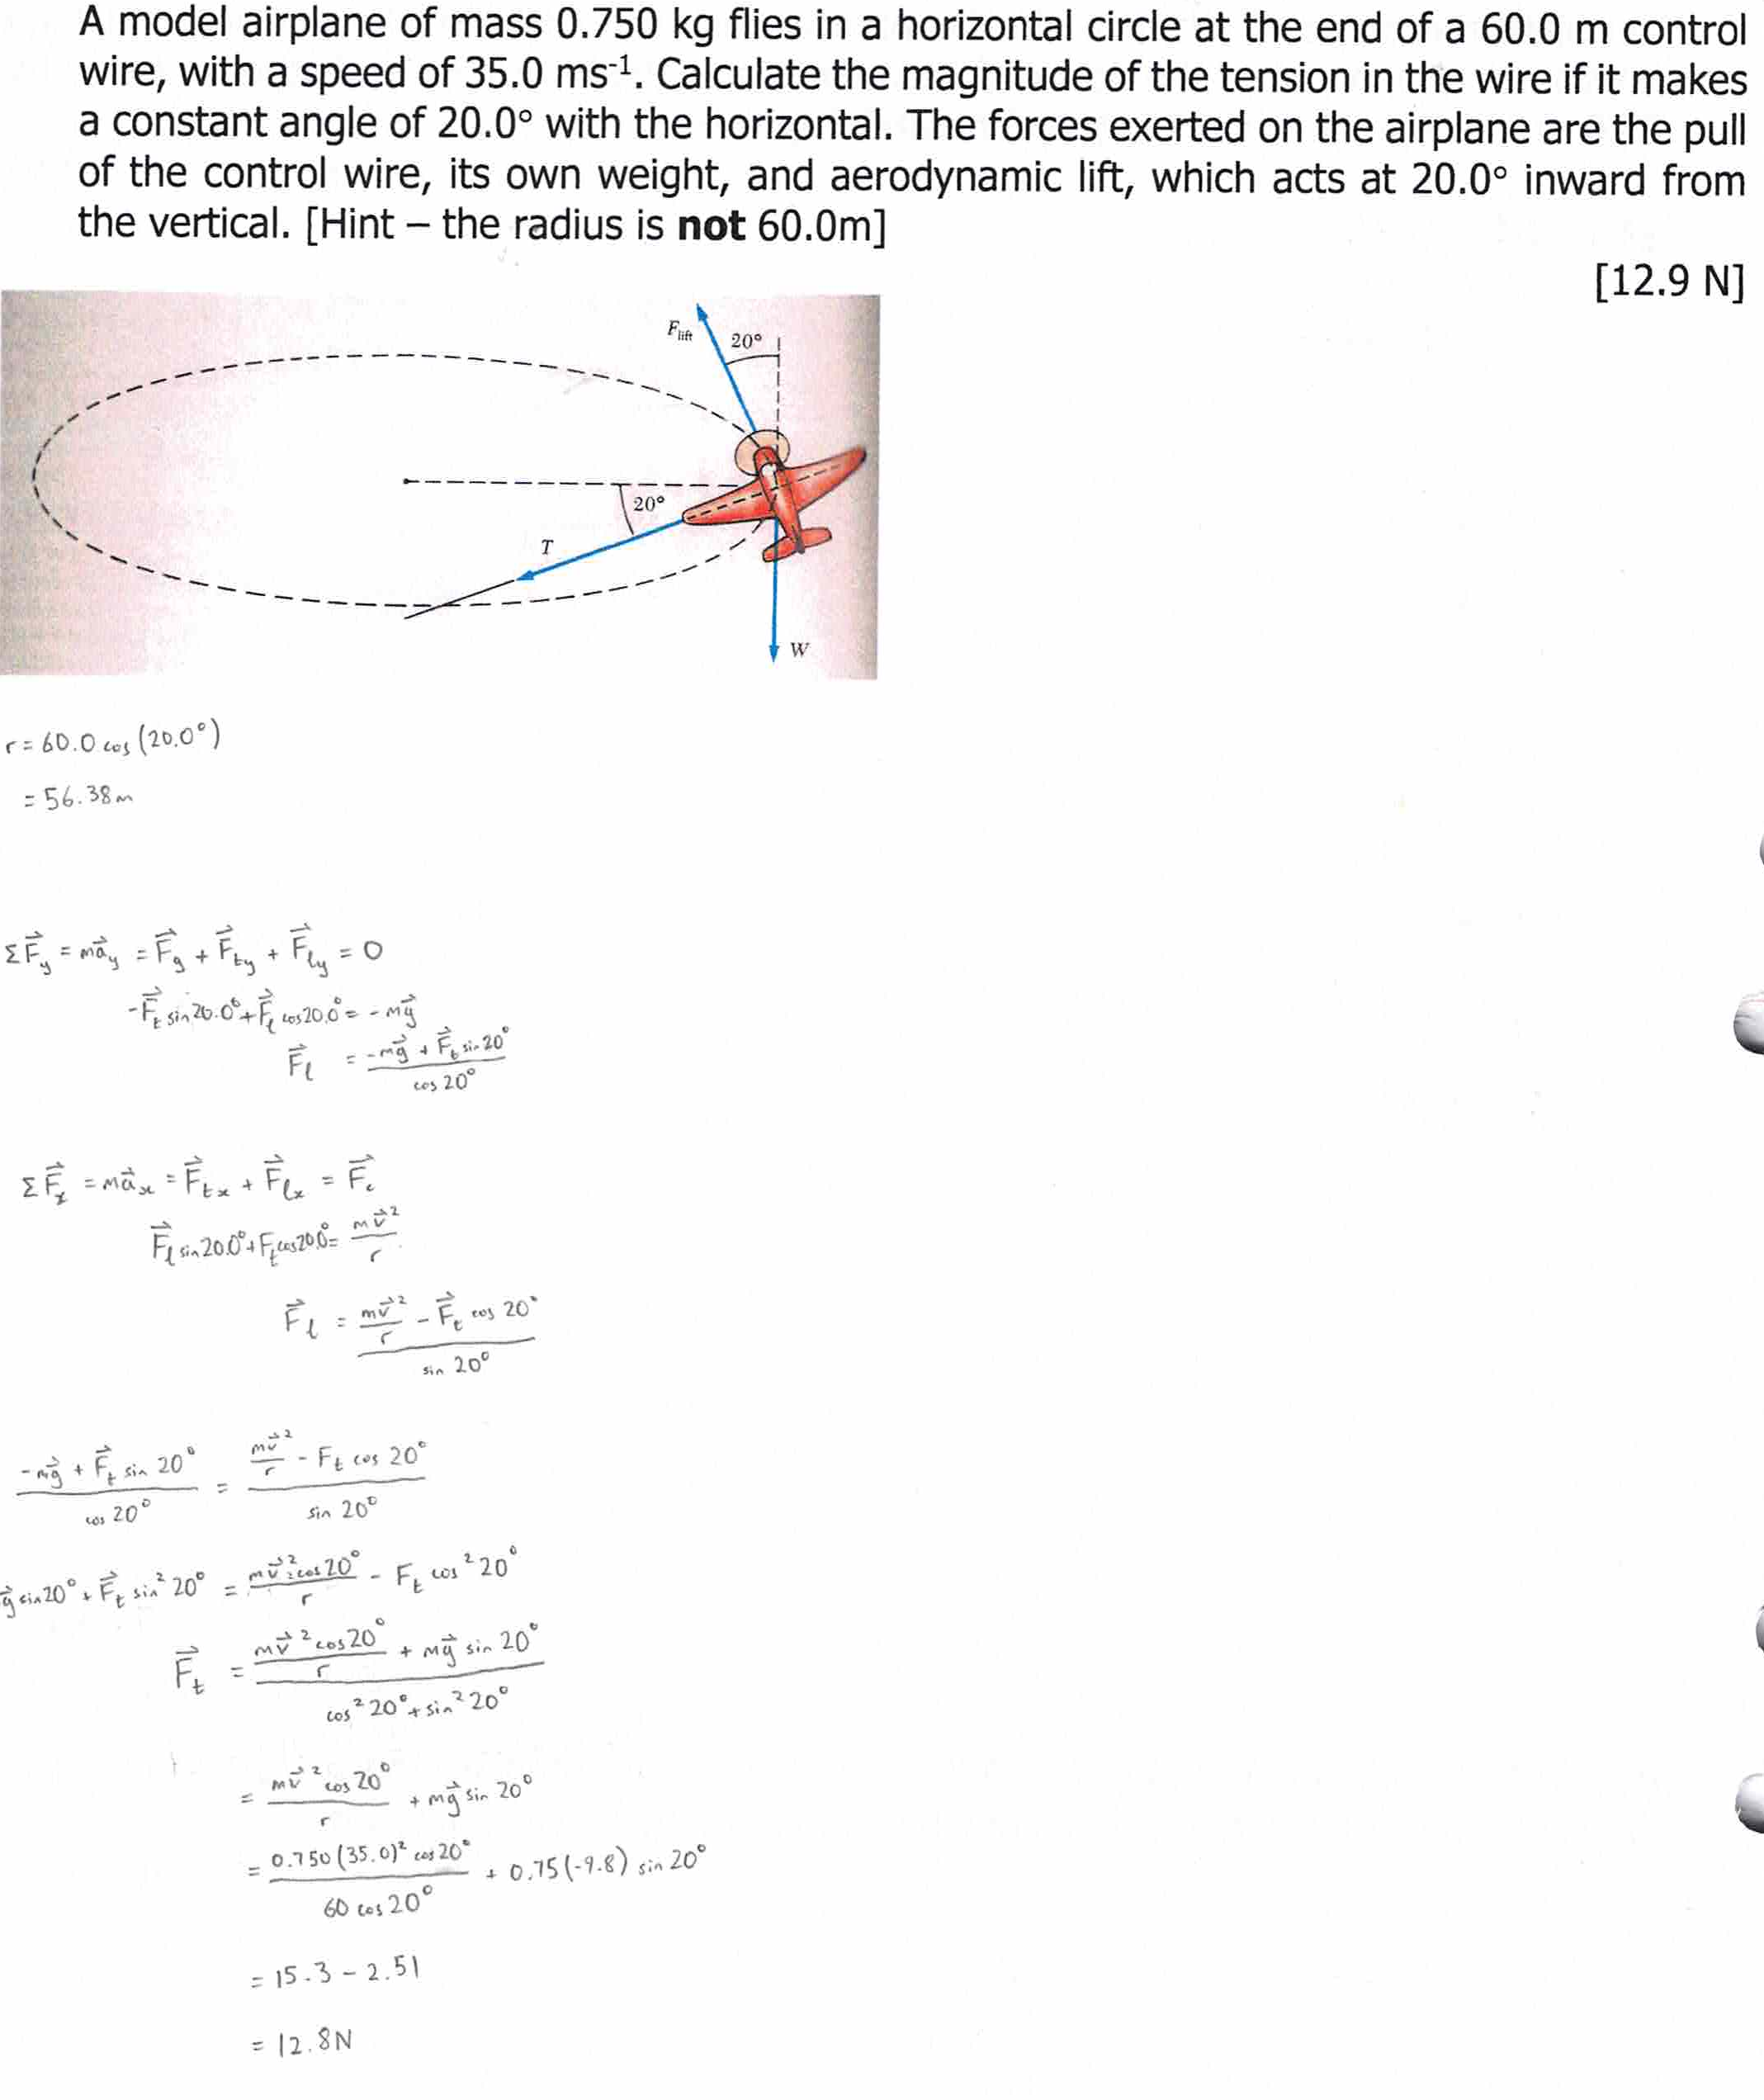 A model airplane of mass 0.750 kg flies in a horizontal circle at the end of a 60.0 m control
wire, with a speed of 35.0 ms⁻¹. Calculate the magnitude of the tension in the wire if it makes
a constant angle of 20.0° with the horizontal. The forces exerted on the airplane are the pull
of the control wire, its own weight, and aerodynamic lift, which acts at 20.0° inward from
the vertical. [Hint – the radius is not 60.0m]
[12.9 N]
F_lift
20°
20°
T
W
r = 60.0 cos (20.0°)
= 56.38m
ΣF⃗_y = ma⃗_y = F⃗_g + F⃗_ty + F⃗_ly = 0
-F⃗_t sin 20.0° + F⃗_l cos 20.0° = -mg⃗
F⃗_l = (-mg⃗ + F⃗_t sin 20°) / cos 20°
ΣF⃗_x = ma⃗_x = F⃗_tx + F⃗_lx = F⃗_c
F⃗_l sin 20.0° + F_t cos 20.0° = mv⃗² / r
F⃗_l = (mv⃗²/r - F⃗_t cos 20°) / sin 20°
(-mg⃗ + F⃗_t sin 20°) / cos 20° = (mv⃗²/r - F_t cos 20°) / sin 20°
g⃗ sin 20° + F⃗_t sin² 20° = mv⃗² cos 20° / r - F_t cos² 20°
F⃗_t = (mv⃗² cos 20° / r + mg⃗ sin 20°) / (cos² 20° + sin² 20°)
= mv⃗² cos 20° / r + mg⃗ sin 20°
= 0.750 (35.0)² cos 20° / 60 cos 20° + 0.75 (-9.8) sin 20°
= 15.3 - 2.51
= 12.8N